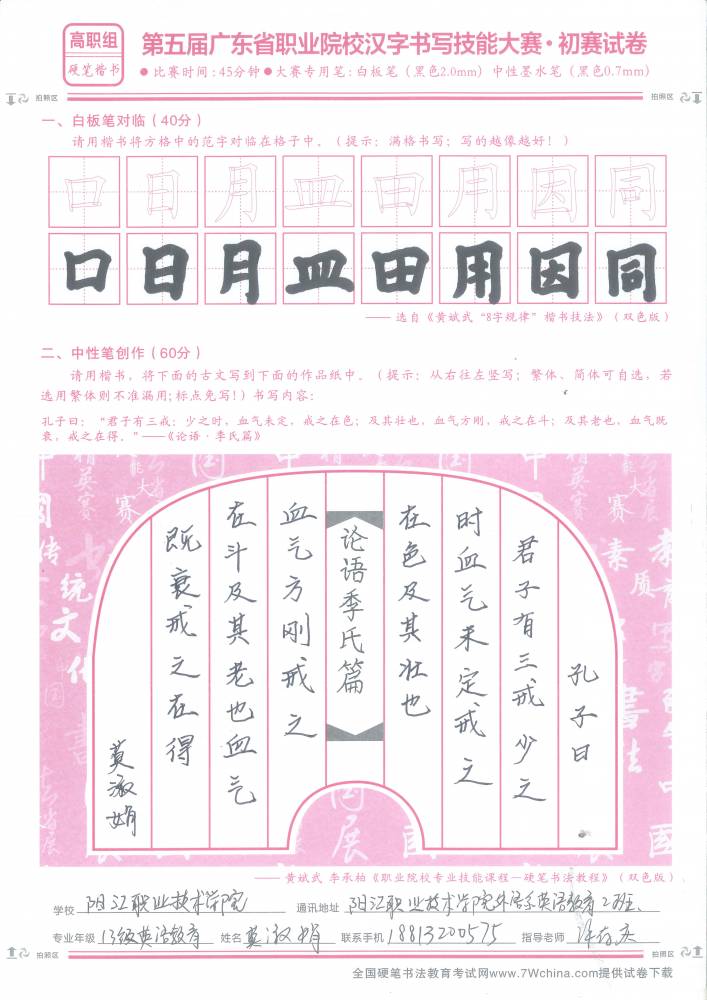 高职组
硬笔楷书
第五届广东省职业院校汉字书写技能大赛·初赛试卷
●比赛时间:45分钟●大赛专用笔:白板笔(黑色2.0mm)中性墨水笔(黑色0.7mm)
拍照区
拍照区
一、白板笔对临(40分)
请用楷书将方格中的范字对临在格子中。(提示:满格书写;写的越像越好!)
口日月皿田用因同
口日月皿田用因同
——选自《黄斌武“8字规律”楷书技法》(双色版)
二、中性笔创作(60分)
请用楷书,将下面的古文写到下面的作品纸中。(提示:从右往左竖写;繁体、简体可自选,若
选用繁体则不准漏用;标点免写!)书写内容:
孔子曰:“君子有三戒:少之时,血气未定,戒之在色;及其壮也,血气方刚,戒之在斗;及其老也,血气既
衰,戒之在得。”——《论语·季氏篇》
孔子曰
君子有三戒少之
时血气未定戒之
在色及其壮也
论语季氏篇
血气方刚戒之
在斗及其老也血气
既衰戒之在得
莫淑娟
——黄斌武 李承柏《职业院校专业技能课程—硬笔书法教程》(双色版)
学校 阳江职业技术学院 通讯地址 阳江职业技术学院外语系英语教育2班、
专业年级 13级英语教育 姓名 莫淑娟 联系手机 18813200575 指导老师
拍照区
拍照区
全国硬笔书法教育考试网www.7Wchina.com提供试卷下载